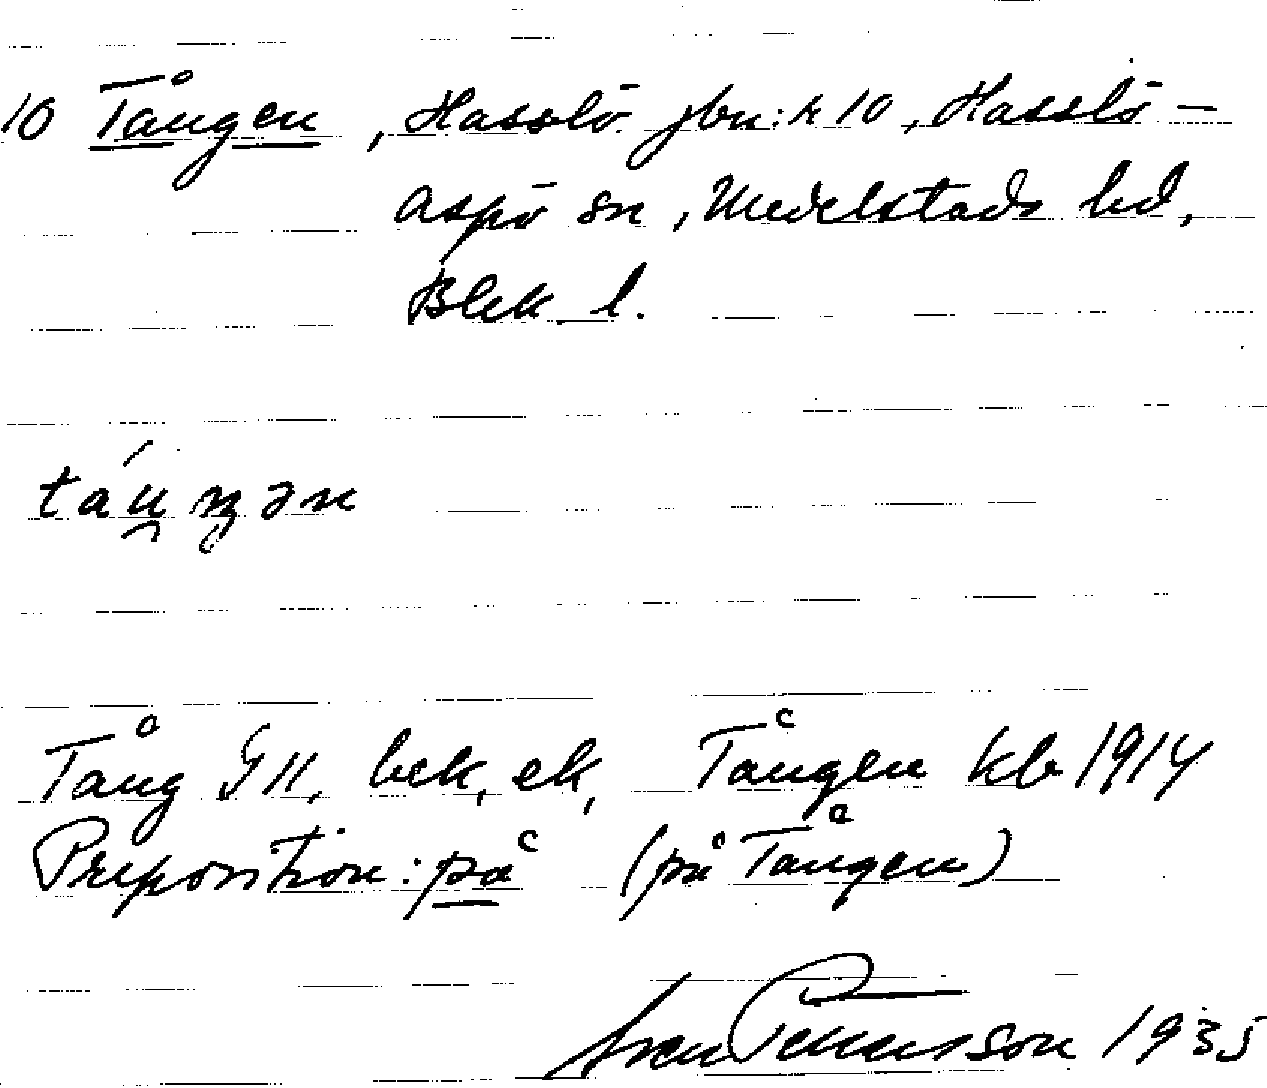 10 Tången, Hasslö jbn:r 10, Hasslö-
aspö sn, Medelstads hd,
Blek. l.
táu̯ŋən
Tång GK, bek, ek, Tången kb 1914
Preposition: på (på Tången)
Sven Pettersson 1935